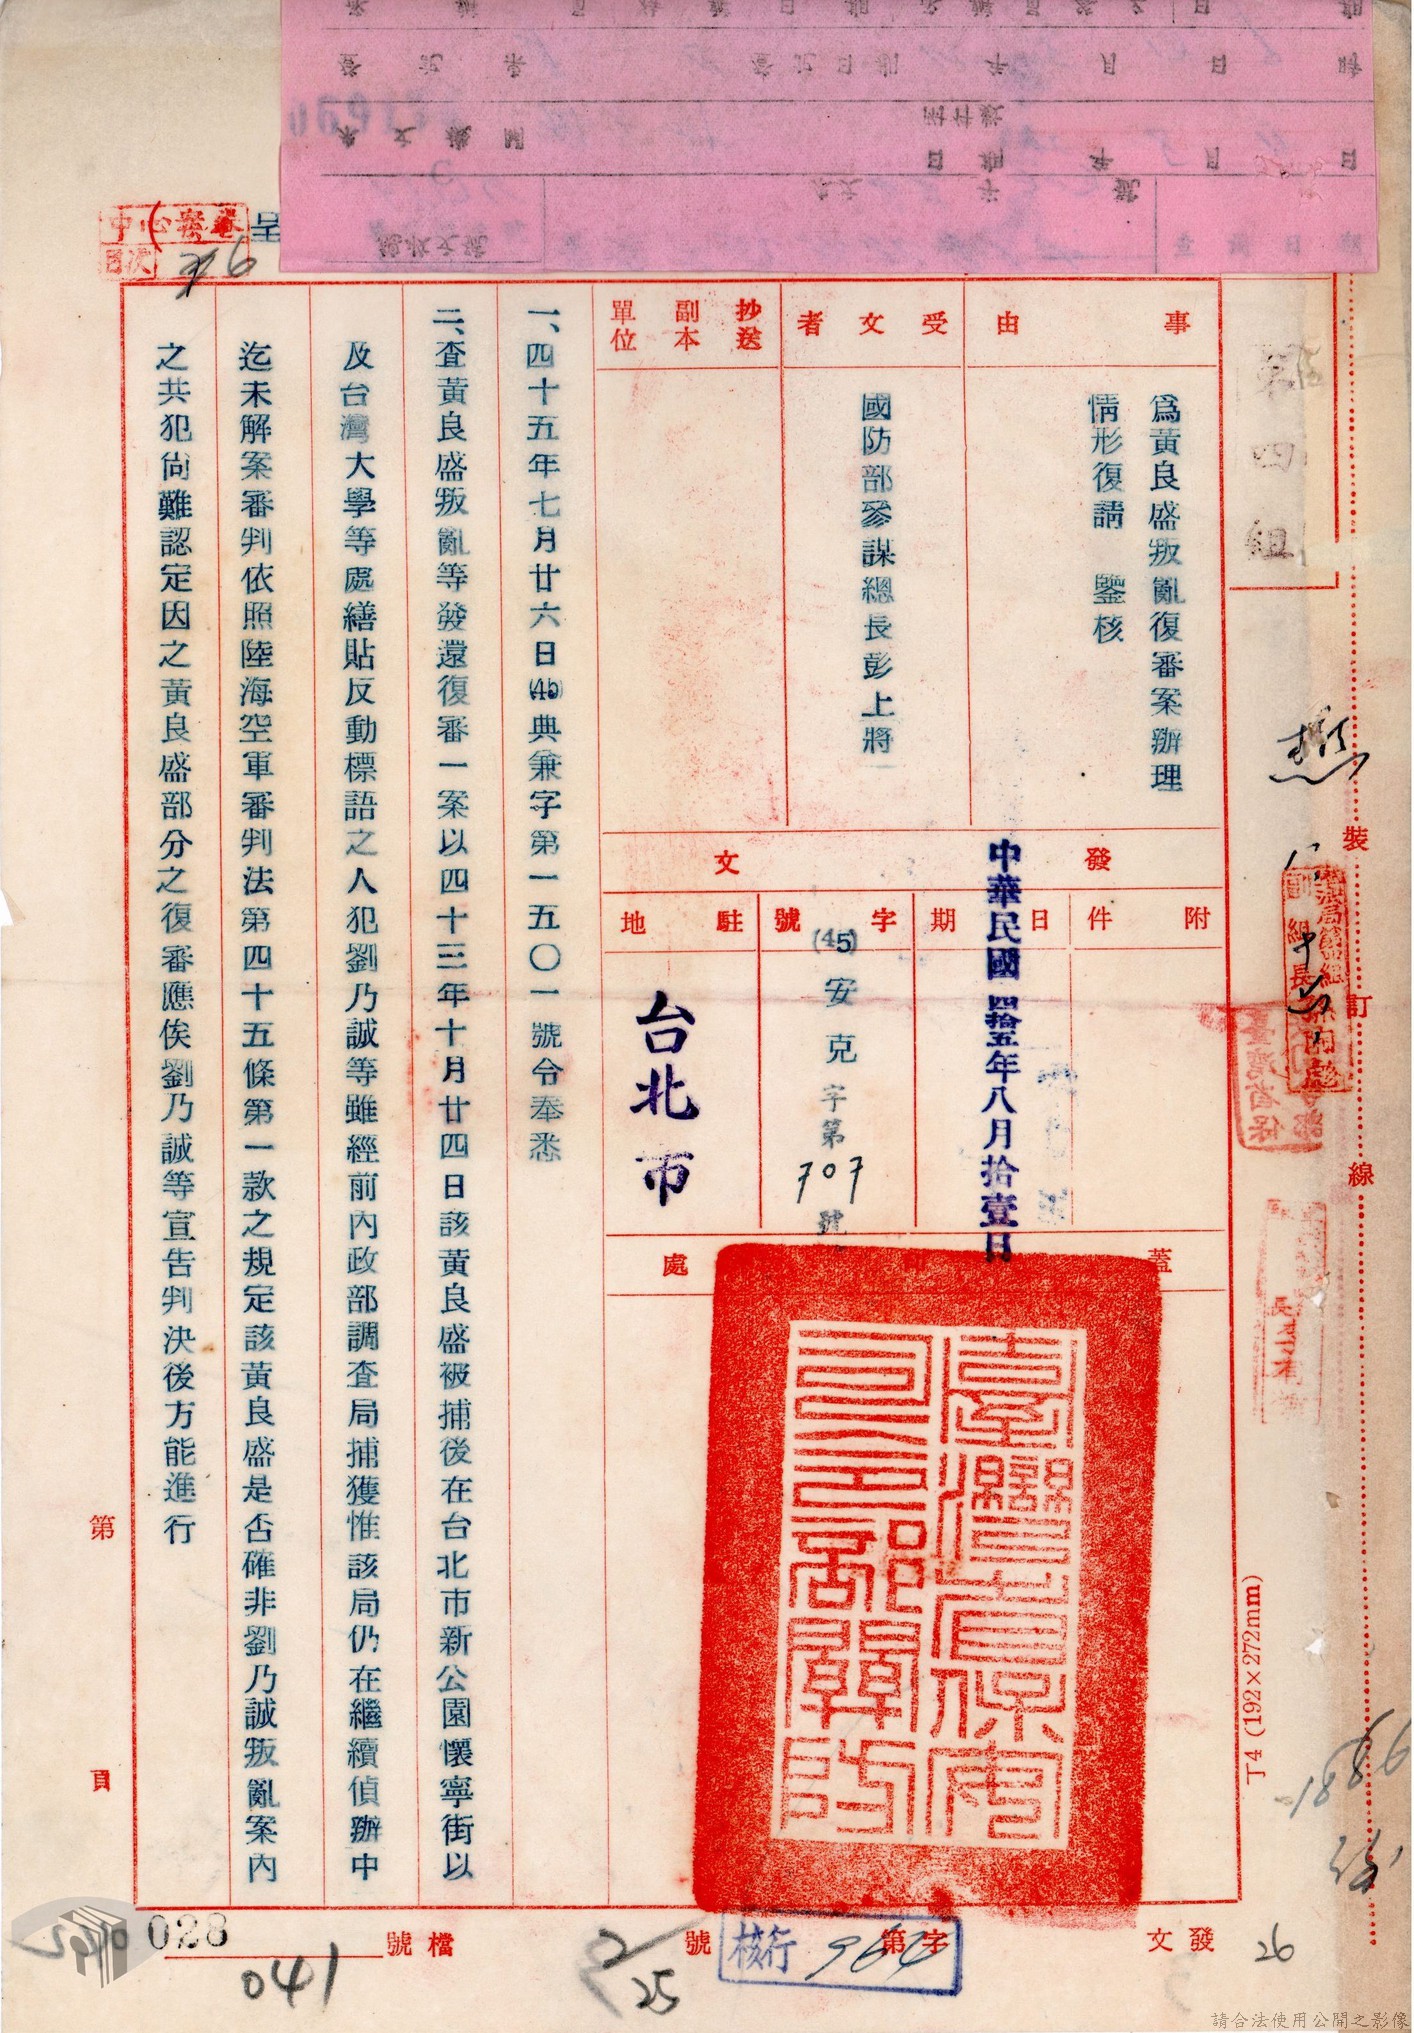 中心案卷
目次
呈
第四組
事由
為黃良盛叛亂復審案辦理
情形復請　鑒核
受文者
國防部參謀總長彭上將
抄送副本單位
發文
附件
日期
中華民國四拾五年八月拾壹日
字號
(45)安克字第707號
駐地
台北市
蓋印處
臺灣省保安司令部關防
一、四十五年七月廿六日(45)典兼字第一五〇一號令奉悉
二、查黃良盛叛亂等發還復審一案以四十三年十月廿四日該黃良盛被捕後在台北市新公園懷寧街以
及台灣大學等處繕貼反動標語之人犯劉乃誠等雖經前內政部調查局捕獲惟該局仍在繼續偵辦中
迄未解案審判依照陸海空軍審判法第四十五條第一款之規定該黃良盛是否確非劉乃誠叛亂案內
之共犯尚難認定因之黃良盛部分之復審應俟劉乃誠等宣告判決後方能進行
裝
訂
線
T4 (192×272mm)
第
頁
發文
字第
號
核行
964
檔號
028
041
2/25
26
請合法使用公開之影像